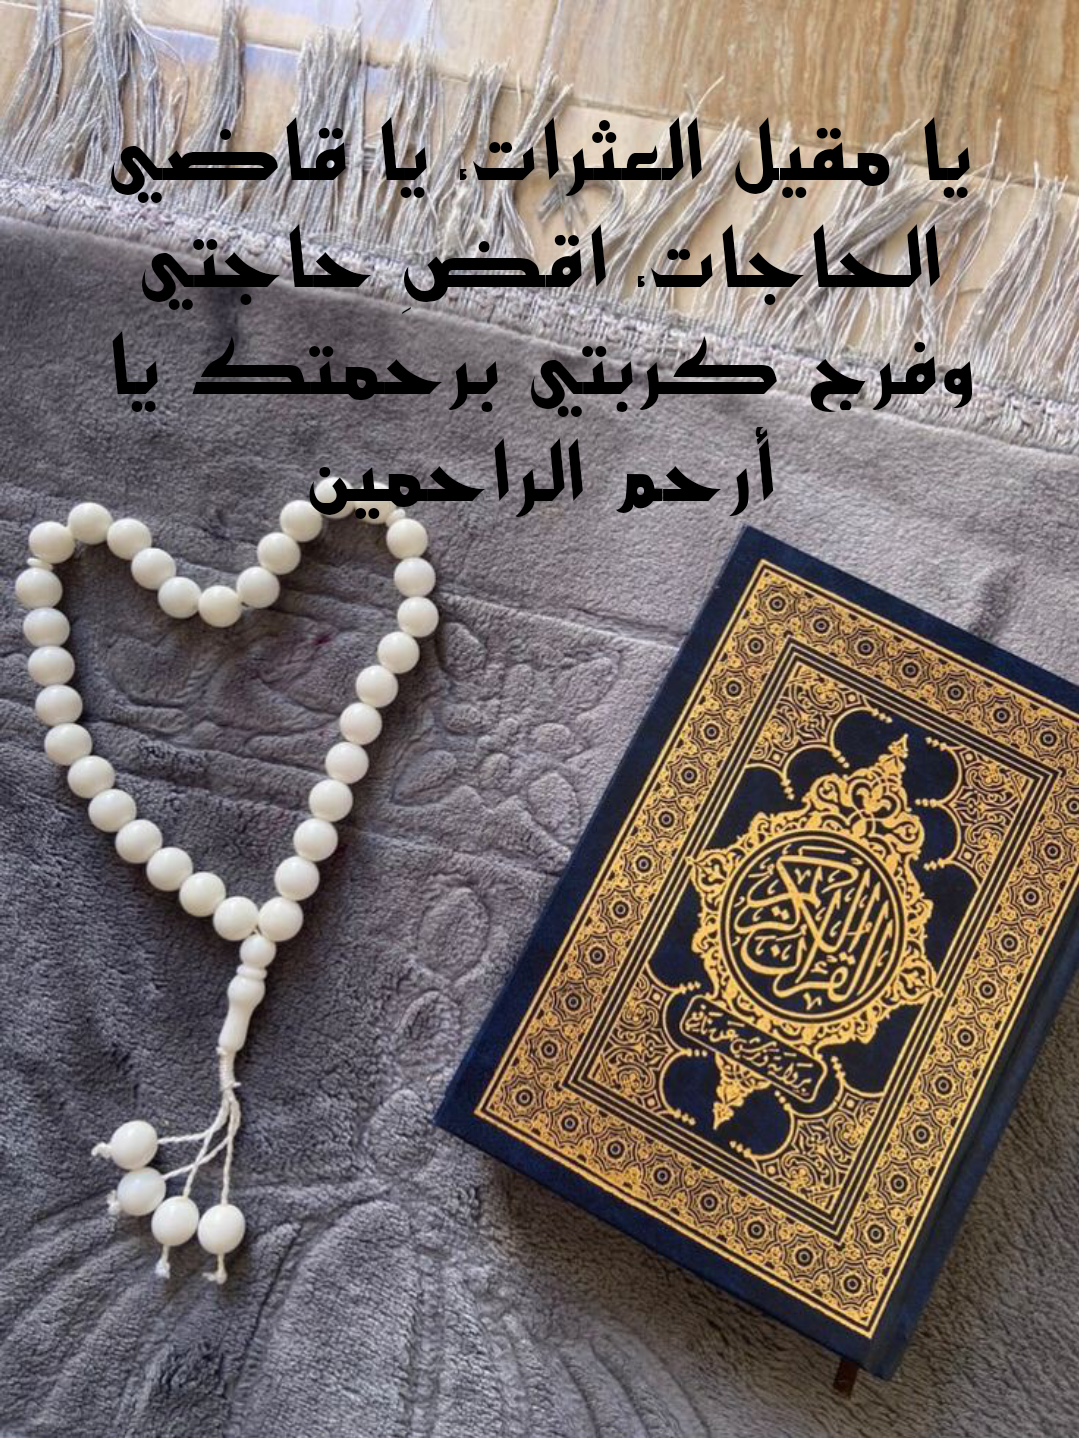 يا مقيل العثرات، يا قاضي
الحاجات، اقضِ حاجتي
وفرج كربتي برحمتك يا
أرحم الراحمين
القرآن الكريم